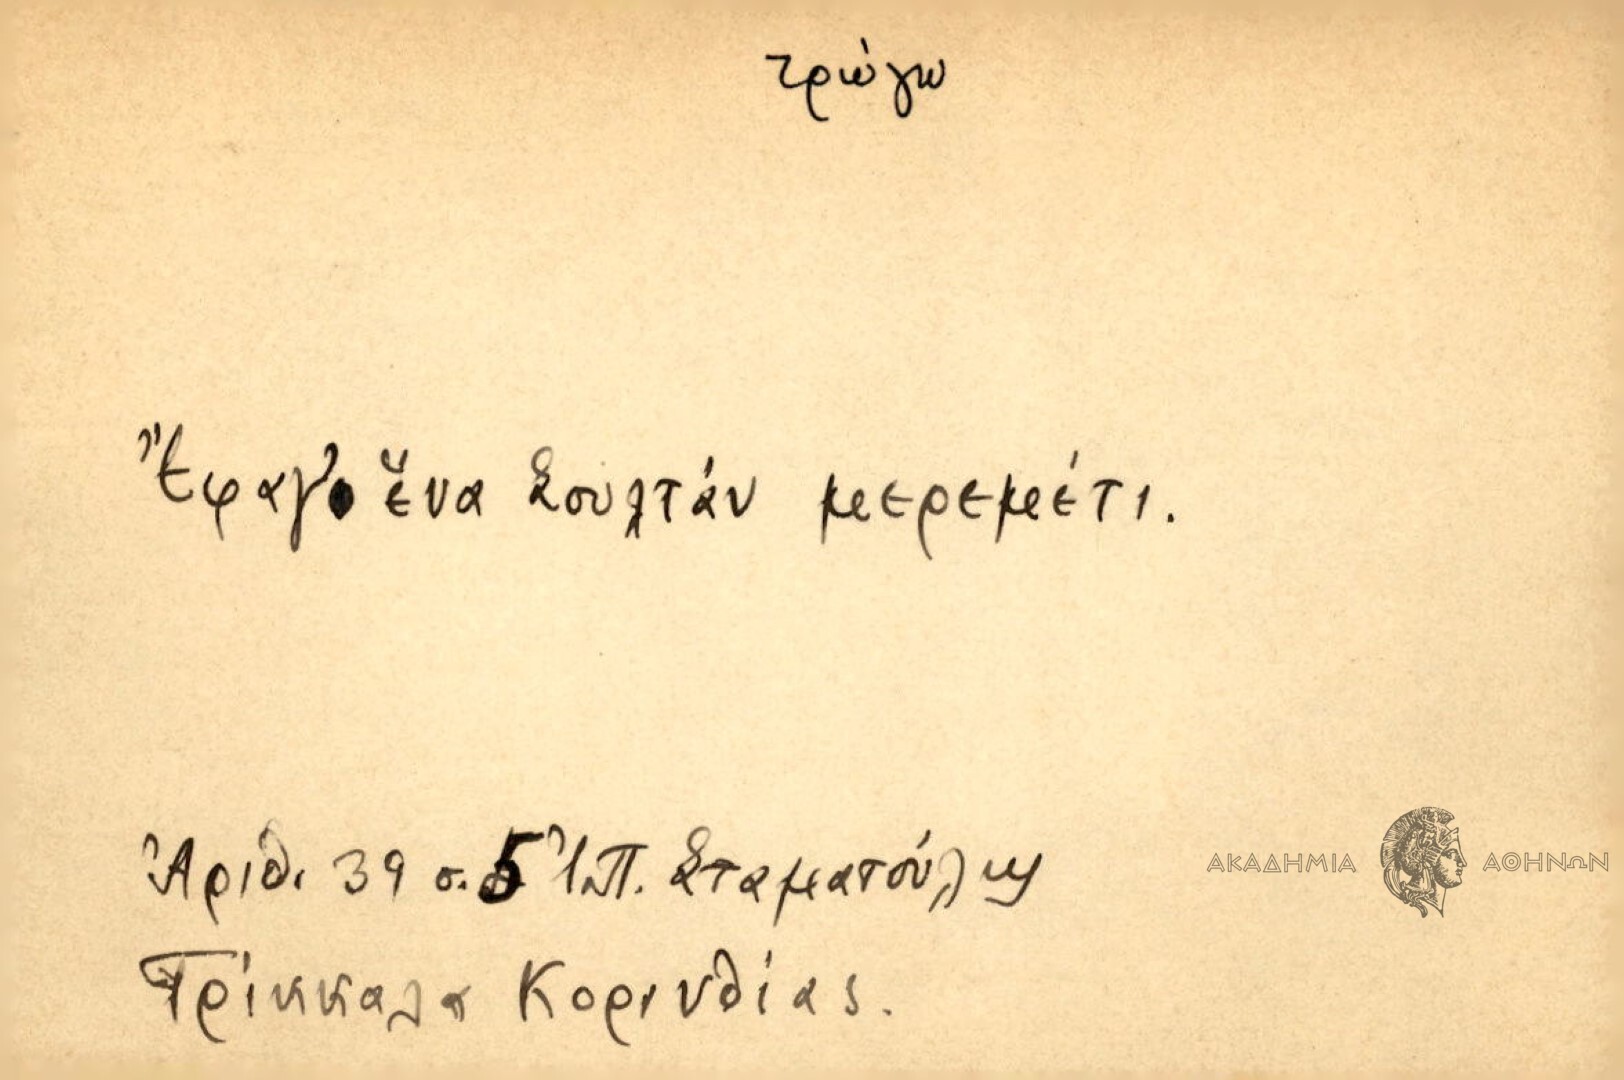 τρώγω
Ἔφαγ' ἕνα Σουλτάν μερεμέτι.
Ἀριθ. 39 σ. 5 Ἰ.Π. Σταματούλης
Τρίκκαλα Κορινθίας.
ΑΚΑΔΗΜΙΑ ΑΘΗΝΩΝ